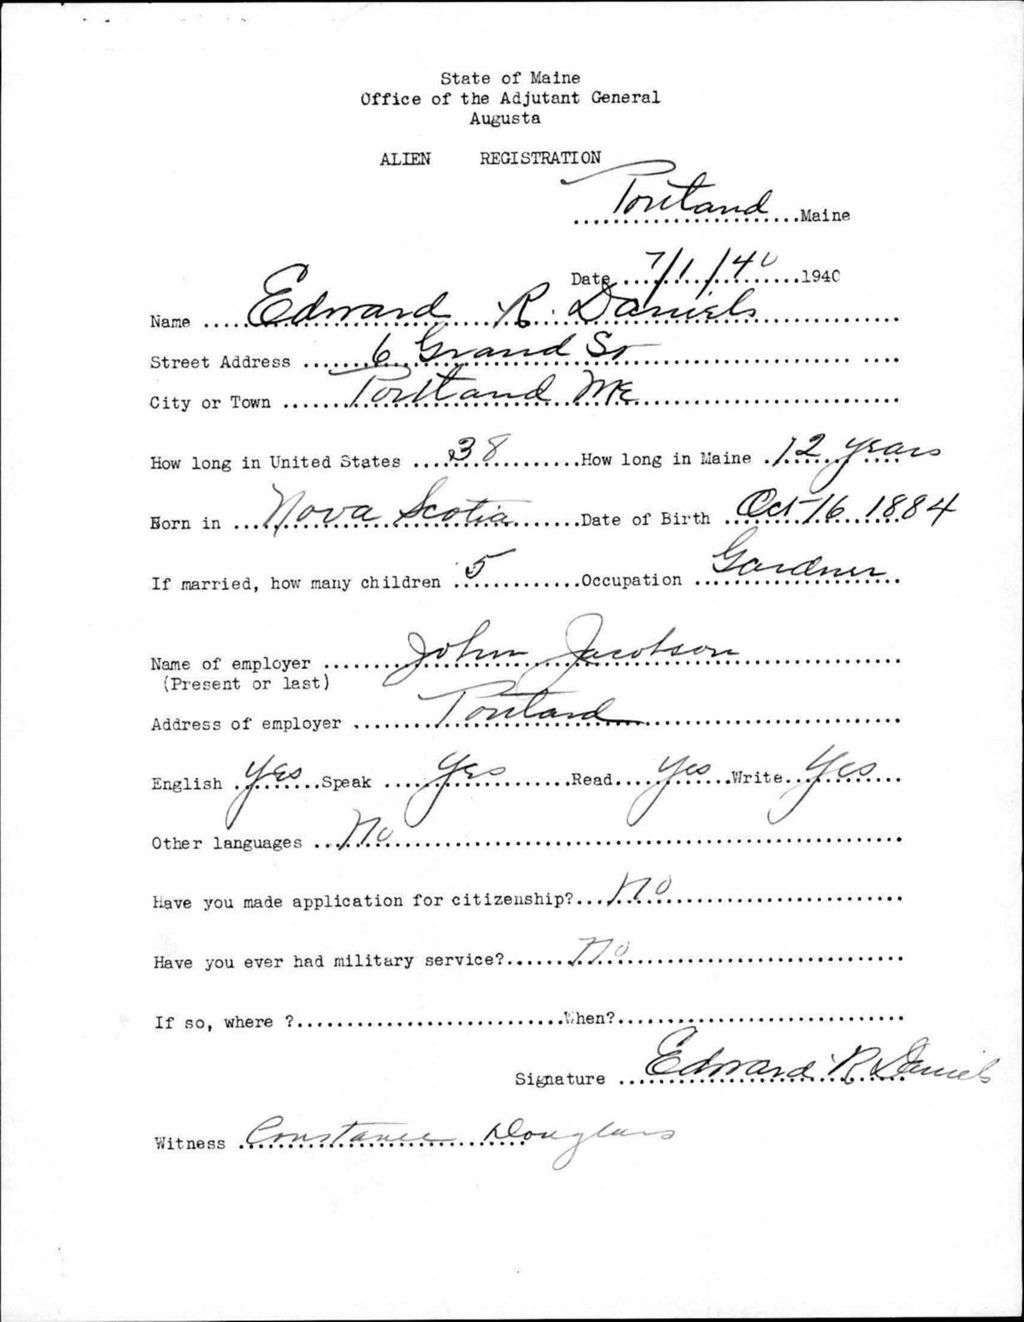 State of Maine
Office of the Adjutant General
Augusta
ALIEN REGISTRATION
Portland Maine
Date 7/1/40 1940
Name Edward R. Daniels
Street Address 6 Grand St
City or Town Portland Me
How long in United States 38 How long in Maine 12 years
Born in Nova Scotia Date of Birth Oct 16 1884
If married, how many children 5 Occupation Gardner
Name of employer John Jacobson
(Present or last)
Address of employer Portland
English Yes Speak Yes Read Yes Write Yes
Other languages No
Have you made application for citizenship? No
Have you ever had military service? No
If so, where ? When?
Signature Edward R Daniels
Witness Constance Douglass